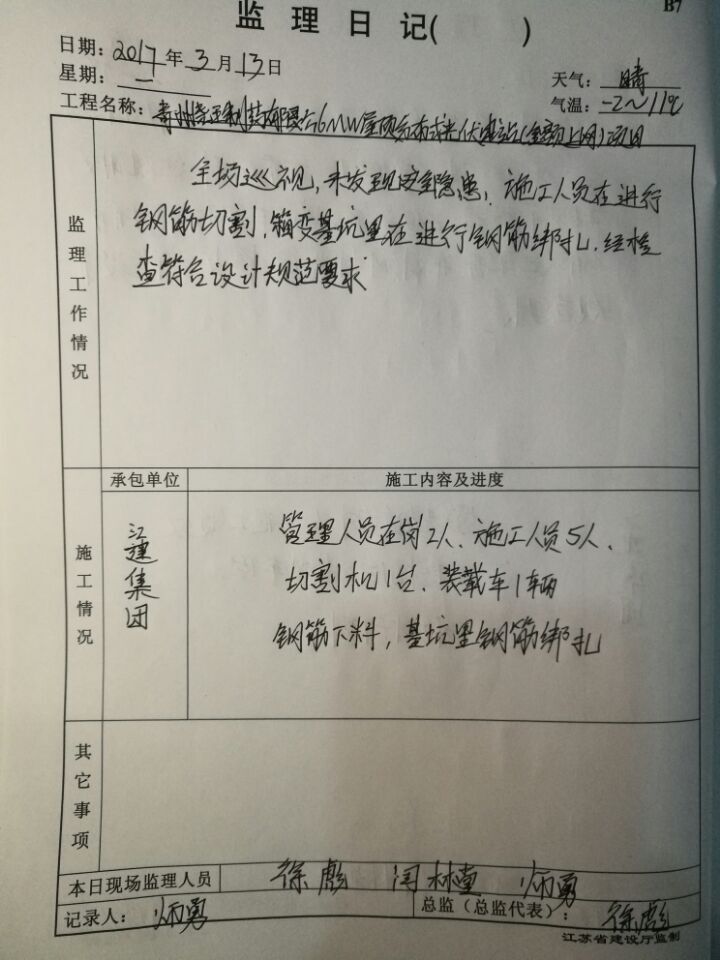 B7
监理日记( )
日期：2017年3月13日
星期：一
天气：晴
气温：-2~11℃
工程名称：青州 制药有限公司6MW屋顶分布式光伏电站(全额上网)项目
监理工作情况
全场巡视，未发现安全隐患，施工人员在进行
钢筋切割，箱变基坑里在进行钢筋绑扎，经检
查符合设计规范要求
承包单位
施工内容及进度
施工情况
江建集团
管理人员在岗2人、施工人员5人、
切割机1台、装载车1辆
钢筋下料，基坑里钢筋绑扎
其它事项
本日现场监理人员 徐彪 闫林 勇
记录人： 勇
总监（总监代表）：徐彪
江苏省建设厅监制